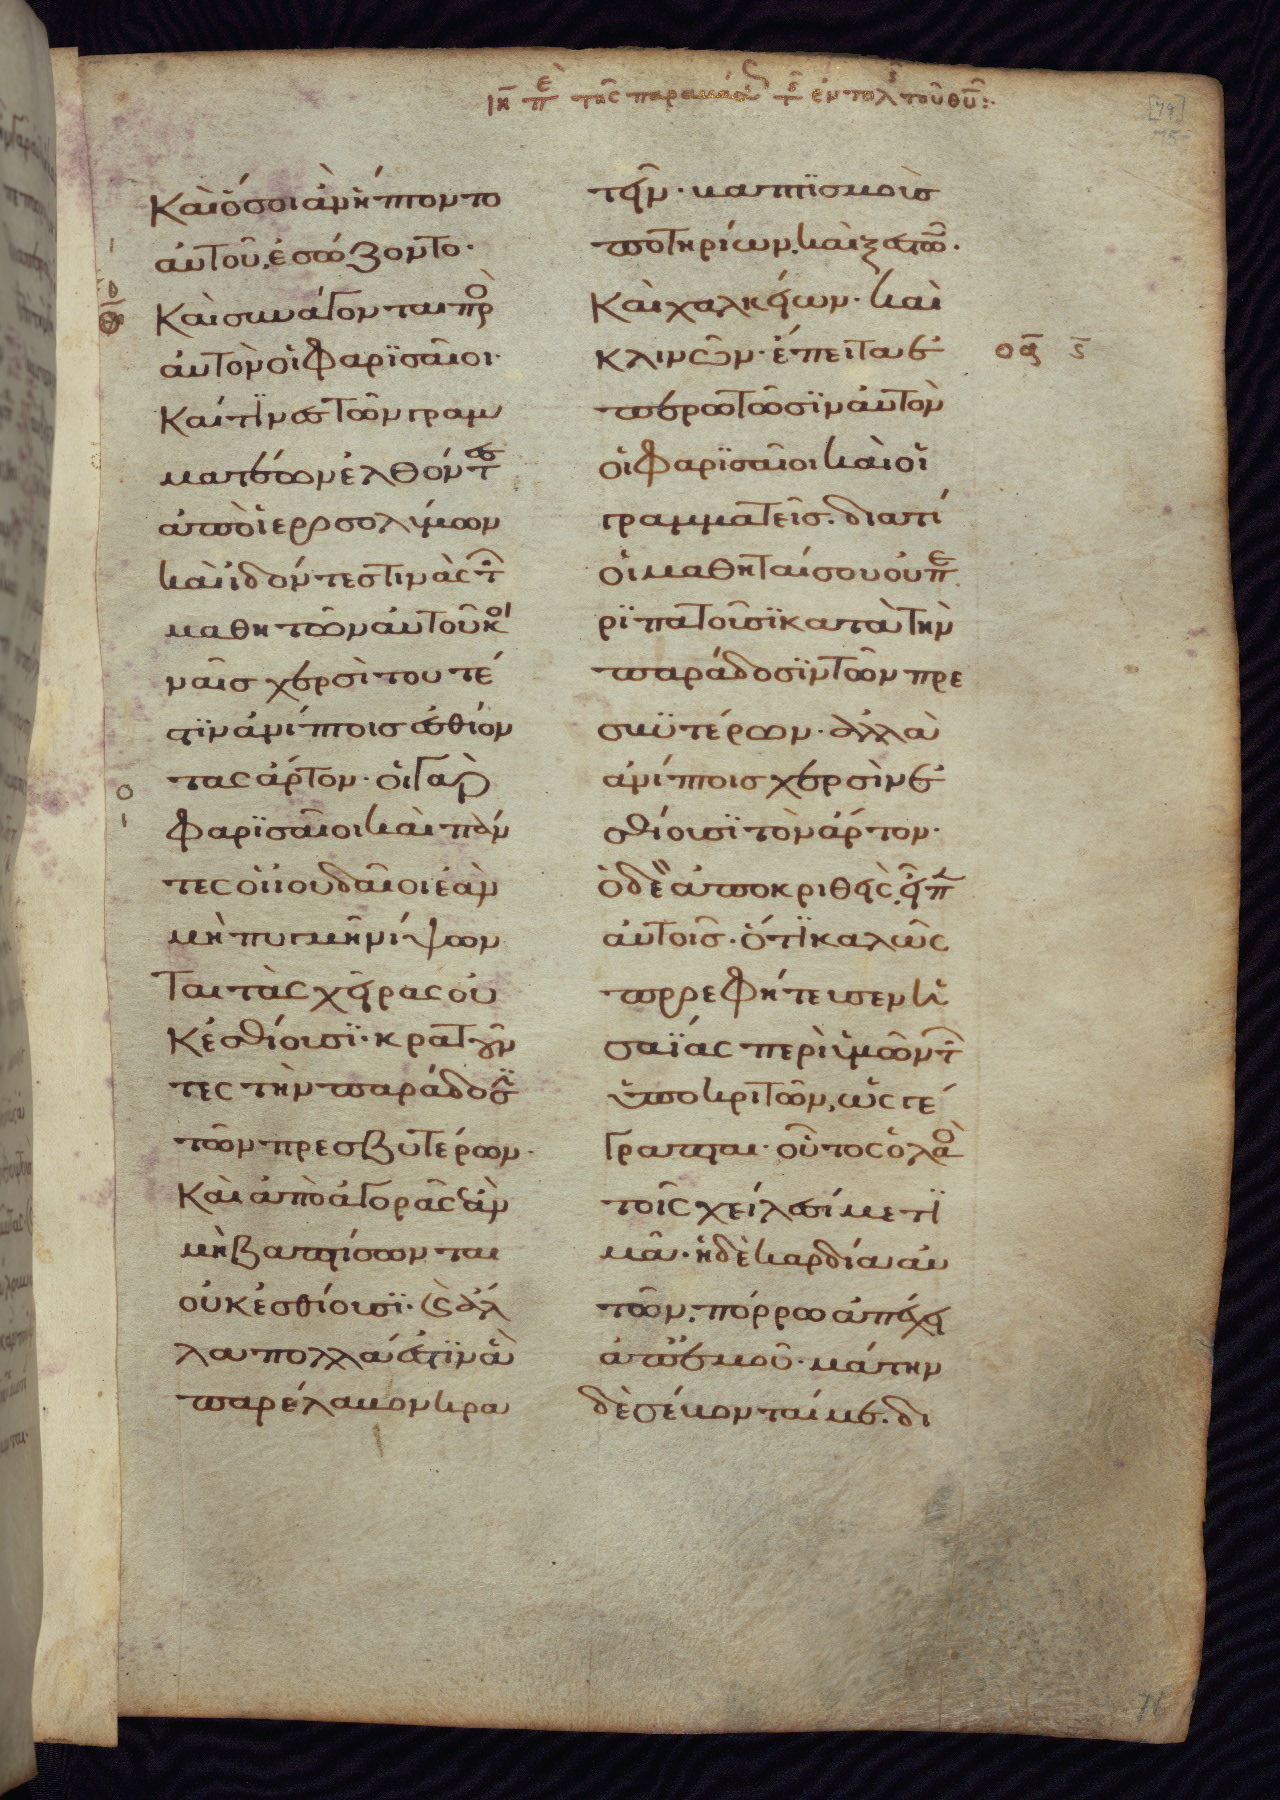 ιη̅ πε τῆς παραβάσ τ ἐντολ τοῦ θυ̅:
[79]
75
Καὶ ὅσοι ἂν ἥπτοντο
αὐτοῦ, ἐσώζοντο·
Καὶ συνάγονται πρὸ
αὐτὸν οἱ Φαρϊσαῖοι·
Καί τϊνες τῶν γραμ
ματέων ἐλθόντες
ἀπὸ ἱεροσολύμων
καὶ ἰδόντες τινὰς τ
μαθητῶν αὐτοῦ κοι
ναῖς χερσὶ τουτέ
στϊν ἀνίπτοις ἐσθίον
τας ἄρτον· οἱ γὰρ
Φαρϊσαῖοι καὶ πάν
τες οἱ ἰουδαῖοι ἐὰν
μὴ πυγμῆ νίψων
ται τὰς χεῖρας οὐ
κ ἐσθίουσϊ· κρατοῦν
τες τὴν παράδοσϊ
τῶν πρεσβυτέρων·
Καὶ ἀπὸ ἀγορᾶς ἐὰν
μὴ βαπτίσωνται
οὐκ ἐσθίουσϊ· ϗ ἀλ
λα πολλά ἐστϊν ἃ
παρέλαβον κρα
τεῖν· βαπτϊσμοὺς
ποτηρίων, καὶ ξεστῶ·
Καὶ χαλκείων· καὶ
κλινῶν· ἔπειτα ἐ
οϛ̅ ϛ̅
περωτῶσϊν αὐτὸν
οἱ Φαρϊσαῖοι καὶ οἱ
γραμματεῖς· διατί
οἱ μαθηταί σου οὐ πε
ρϊπατοῦσϊ κατὰ τὴν
παράδοσϊν τῶν πρε
σβϋτέρων· ἀλλὰ
ἀνίπτοις χερσὶν ἐ
σθίουσϊ τὸν ἄρτον·
ὁ δὲ ἀποκριθεὶς, εἶπ
αὐτοῖς· ὅτϊ καλῶς
προεφήτευσεν ἡ
σαΐας περὶ ὑμῶν τ
ὑποκριτῶν, ὡς γέ
γραπται· οὗτος ὁ λαὸ
τοῖς χείλεσί με τϊ
μᾶ· ἡ δὲ καρδία αὐ
τῶν, πόρρω ἀπέχει
ἀπ' ἐμοῦ· μάτην
δὲ σέβονταί με· δι
76